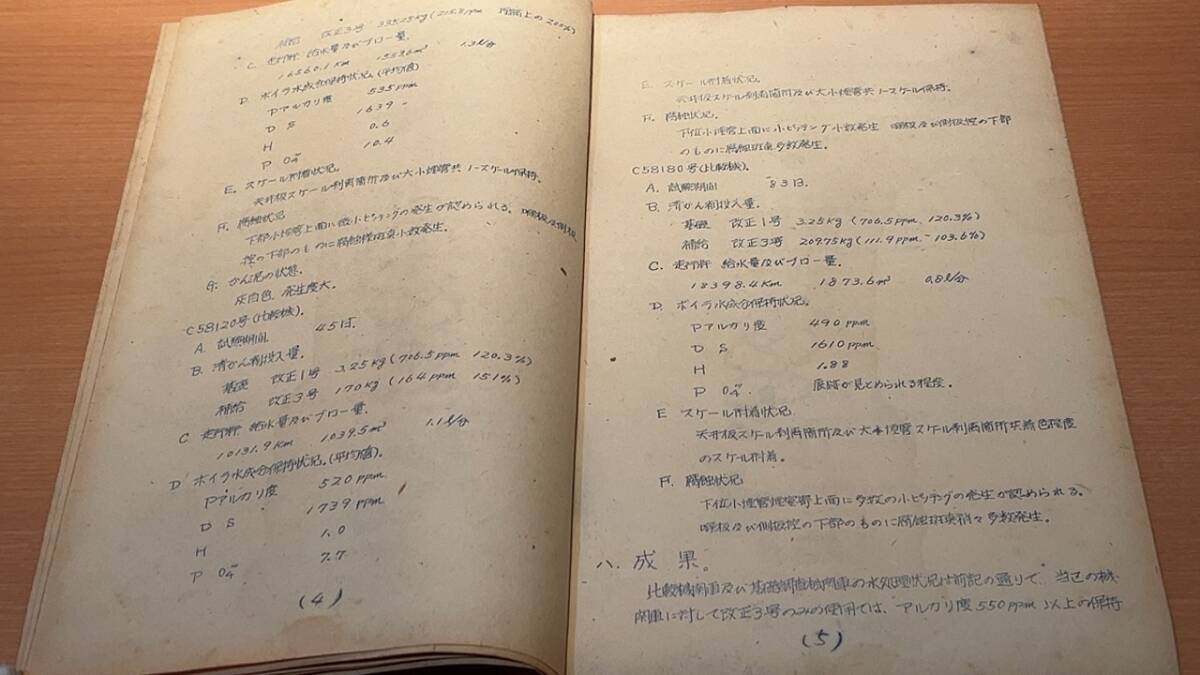 補給 改正3号 335.25kg(215.8ppm 理論上の200%)
C. 走行粁 給水量及びブロー量.
16560.1Km 1553.6m³ 1.3ℓ/分
D. ボイラ水成分保持状況.(平均値)
Pアルカリ度 535ppm
D S 1639 〃
H 0.6
P O₄‴ 10.4
E. スケール附着状況.
天井板スケール剥両箇所及び大小煙管共1-スケール保持.
F. 腐蝕状況
下部小煙管上面に微小ピッチングの発生が認められる.
控の下部のものに腐蝕斑点少数発生.
G. かん泥の状態.
灰白色.発生度大.
C58120号(比較機).
A. 試験期間 45日.
B. 清かん剤投入量.
基礎 改正1号 3.25kg(706.5ppm 120.3%)
補給 改正3号 170kg(164ppm 151%)
C 走行粁 給水量及びブロー量.
10131.9Km 1039.5m³ 1.1ℓ/分
D ボイラ水成分保持状況.(平均値).
Pアルカリ度 520ppm
D S 1739ppm
H 1.0
P O₄‴ 7.7
(4)
E. スケール附着状況.
天井板スケール剥両箇所及び大小煙管共1-スケール保持.
F. 腐蝕状況.
下位小煙管上面に小ピッチング小数発生 喉板及び側板控の下部
のものに腐蝕斑点多数発生.
C58180号(比較機).
A. 試験期間 83日.
B. 清かん剤投入量.
基礎 改正1号 3.25kg(706.5ppm. 120.3%)
補給 改正3号 209.75kg(111.9ppm. 103.6%)
C. 走行粁 給水量及びブロー量.
18398.4Km 1873.6m³ 0.8ℓ/分
D. ボイラ水成分保持状況.
Pアルカリ度 490ppm
D S 1610ppm
H 1.88
P O₄‴ 痕跡が見とめられる程度.
E スケール附着状況
天井板スケール剥両箇所及び大小煙管スケール剥両箇所灰着色程度
のスケール附着.
F. 腐蝕状況
下位小煙管煙室寄上面に多数の小ピッチングの発生が認められる.
喉板及び側板控の下部のものに腐蝕斑点稍々多数発生.
ハ.成果.
比較機関車及び基礎調査機関車の水処理状況は前記の通りで、当区の機
関車に対して改正3号のみの使用では、アルカリ度550ppm以上の保持
(5)